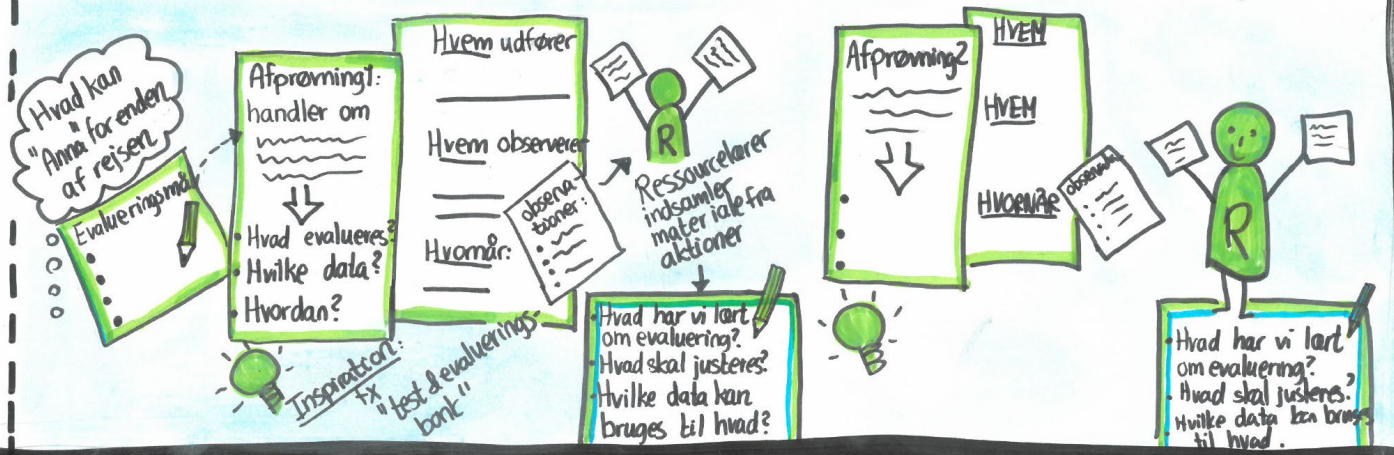 Hvad kan
"Anna" for enden
af rejsen
Evalueringsmål
Afprøvning1:
handler om
Hvad evalueres?
Hvilke data?
Hvordan?
Hvem udfører
Hvem observerer
Hvornår:
observa-
tioner:
Inspiration:
fx
"test & evaluerings-
bank"
R
Ressourcelærer
indsamler
materiale fra
aktioner
Hvad har vi lært
om evaluering?
Hvad skal justeres?
Hvilke data kan
bruges til hvad?
Afprøvning2
HVEM
HVEM
HVORNÅR
R
Hvad har vi lært
om evaluering?
Hvad skal justeres?
Hvilke data kan bruges
til hvad.